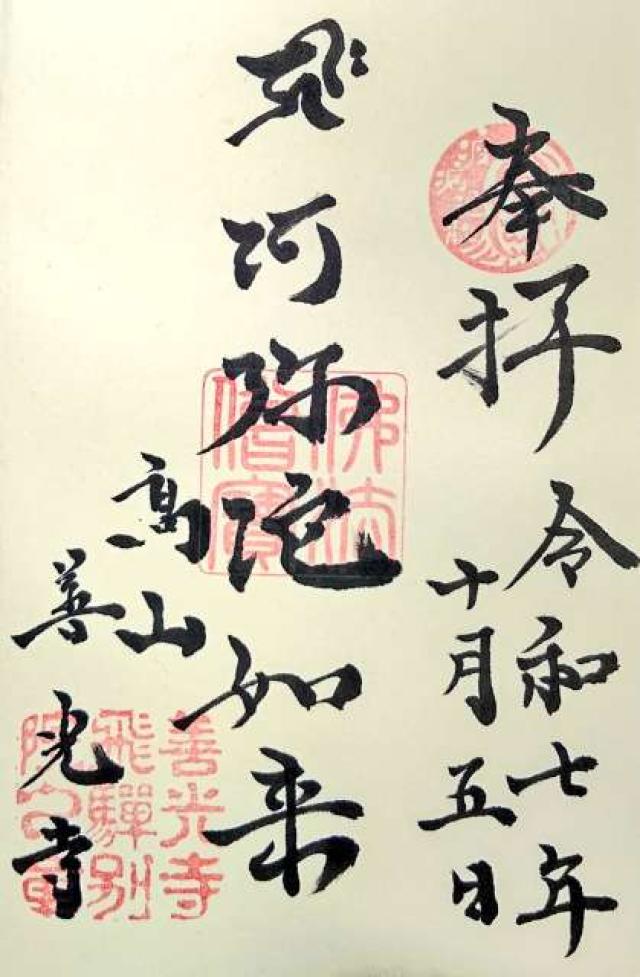 奉拝
令和七年
十月五日
阿弥陀如来
高山
善光寺
佛法
僧寳
善光寺
飛騨別
院